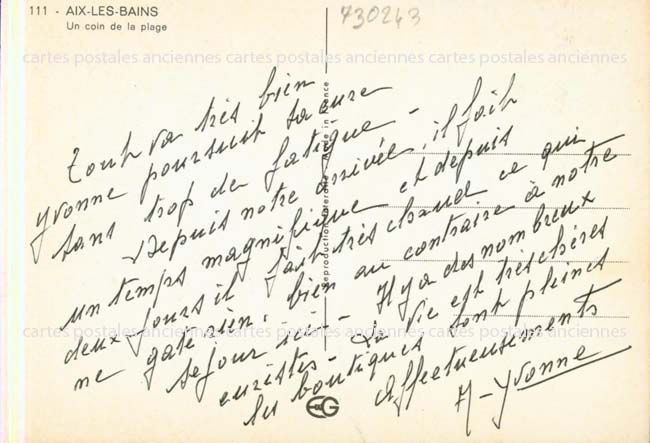 111 - AIX-LES-BAINS
Un coin de la plage
730243
cartes postales anciennes cartes postales anciennes cartes postales anciennes
Tout va très bien
Yvonne poursuit sa cure
sans trop de fatigue -
Depuis notre arrivée, il fait
un temps magnifique et depuis
deux jours il fait très chaud ce qui
ne gate rien, bien au contraire à notre
sejour ici - Il y a des nombreux
curistes - La vie est très chères
les boutiques sont pleines
Affectueusements
A - Yvonne
cartes postales anciennes cartes postales anciennes cartes postales anciennes
Made in France
EG